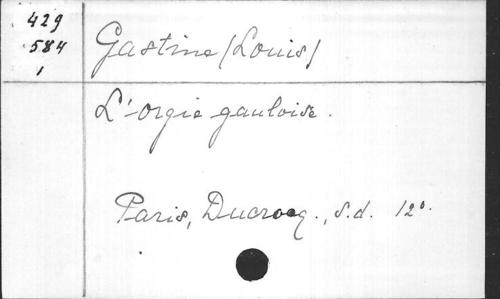 429
584
1
Gastine (Louis)
L'orgie gauloise.
Paris, Ducrocq., s.d. 12°.